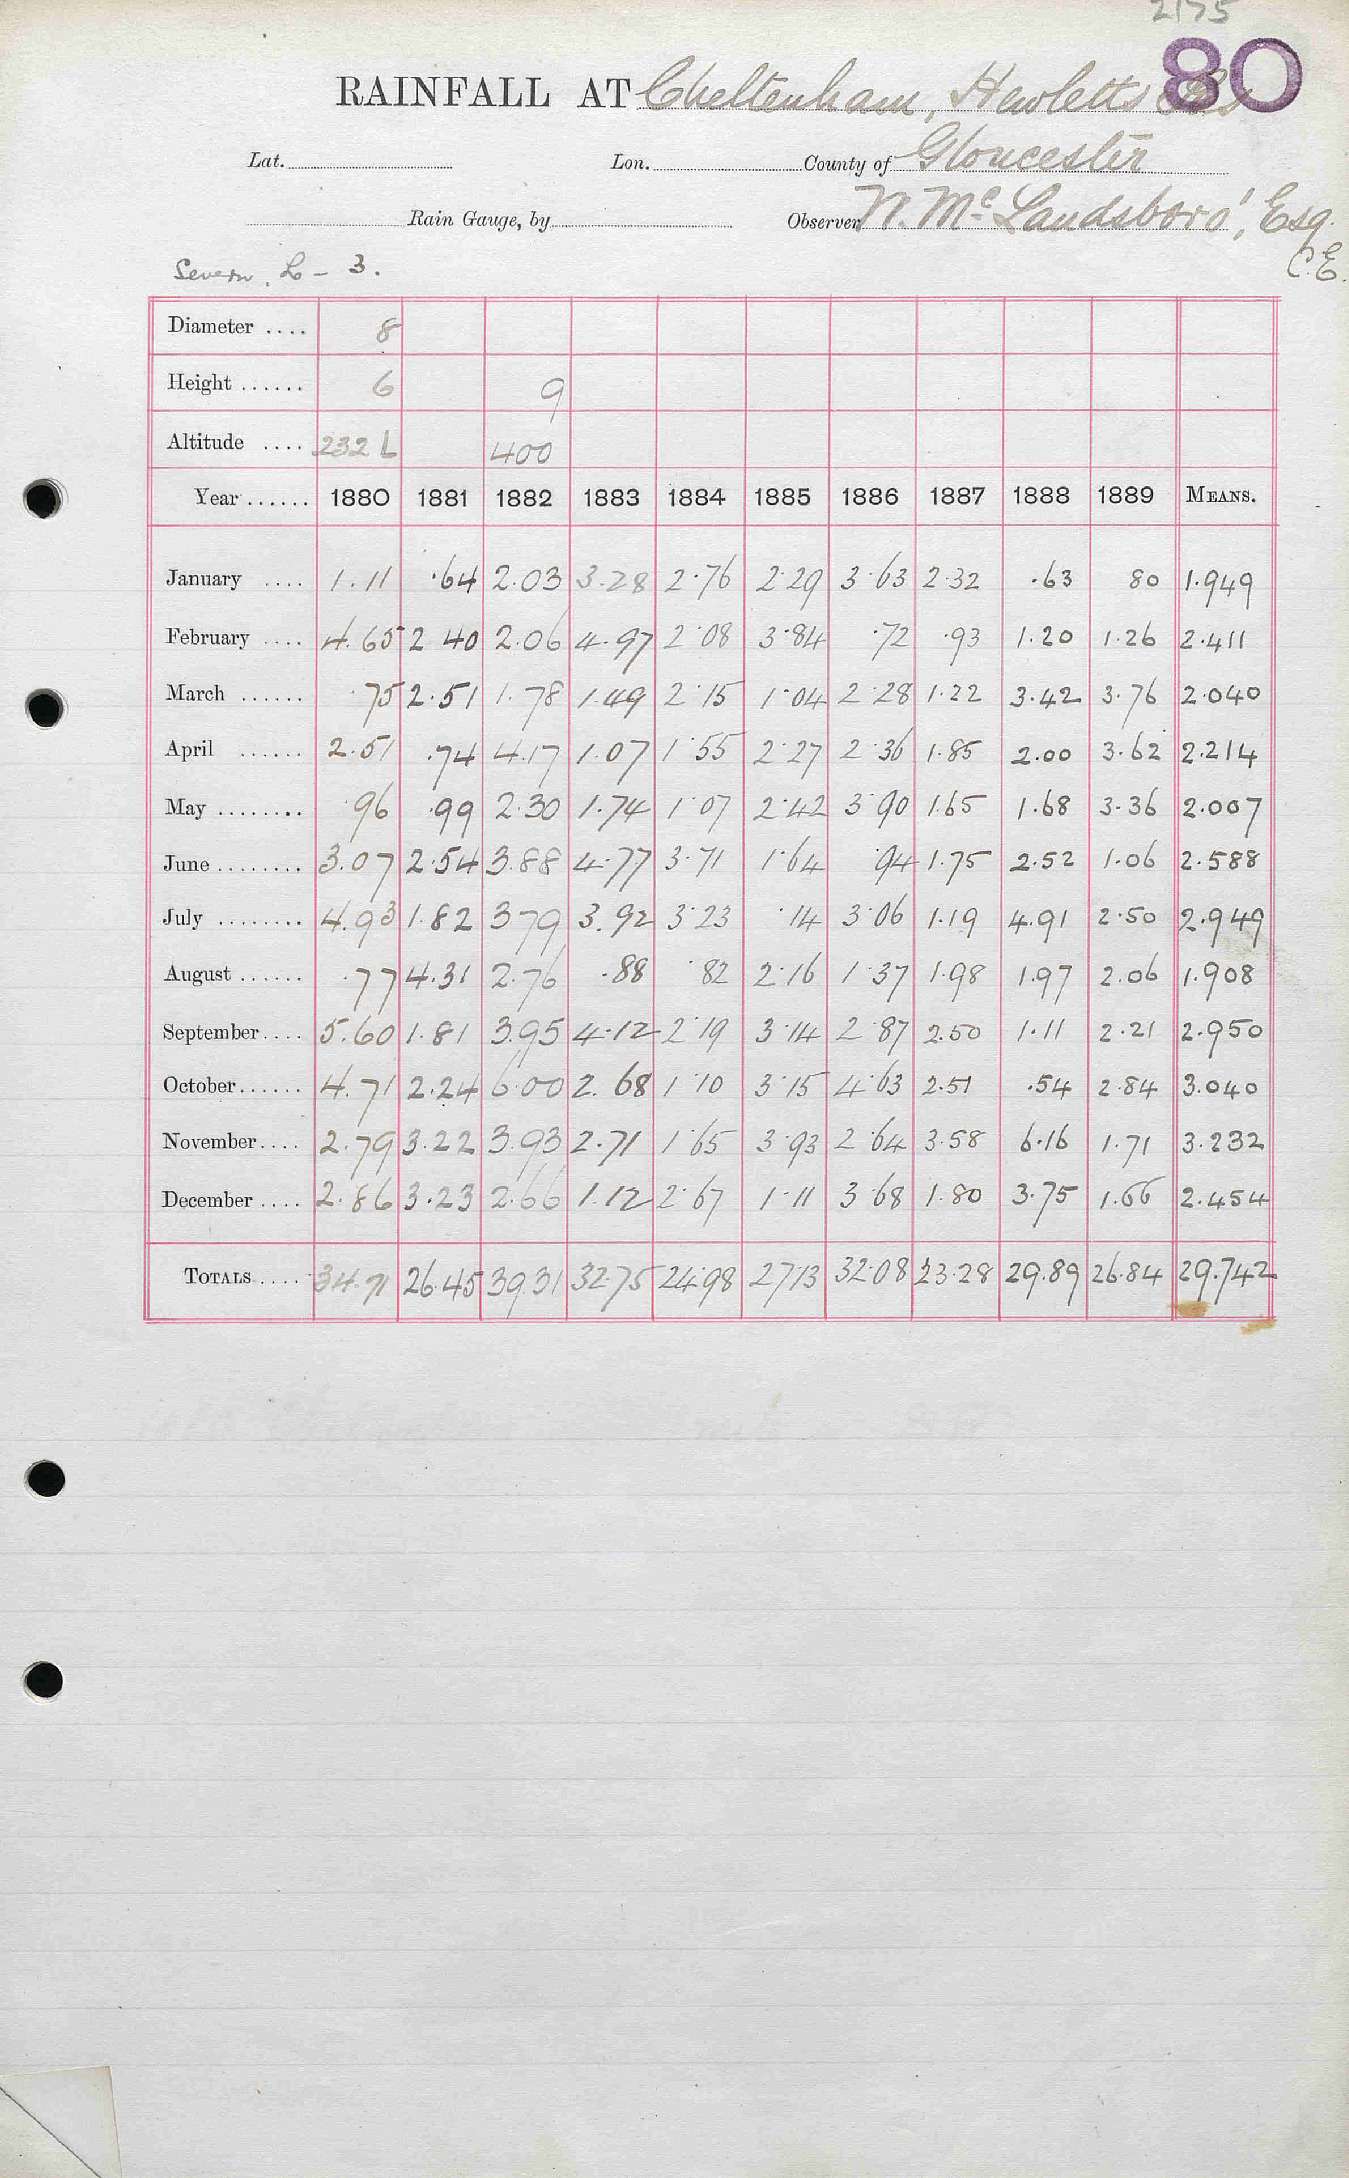 2175
80
RAINFALL AT Cheltenham, Hewletts Res
Lat. Lon. County of Gloucester
Rain Gauge, by Observer W. Mc Landsboro', Esq.
C.E.
Severn. L - 3.
Diameter .... 8
Height ...... 6 9
Altitude .... 232 L 400
Year ...... 1880 1881 1882 1883 1884 1885 1886 1887 1888 1889 MEANS.
January .... 1.11 .64 2.03 3.28 2.76 2.29 3.63 2.32 .63 80 1.949
February .... 4.65 2 40 2.06 4.97 2.08 3.84 .72 .93 1.20 1.26 2.411
March ...... .75 2.51 1.78 1.49 2.15 1.04 2.28 1.22 3.42 3.76 2.040
April ...... 2.51 .74 4.17 1.07 1.55 2.27 2.36 1.85 2.00 3.62 2.214
May ........ .96 .99 2.30 1.74 1.07 2.42 3.90 1.65 1.68 3.36 2.007
June ........ 3.07 2.54 3.88 4.77 3.71 1.64 .94 1.75 2.52 1.06 2.588
July ........ 4.93 1.82 3.79 3.92 3.23 .14 3.06 1.19 4.91 2.50 2.949
August ...... .77 4.31 2.76 .88 .82 2.16 1.37 1.98 1.97 2.06 1.908
September .... 5.60 1.81 3.95 4.12 2.19 3.14 2.87 2.50 1.11 2.21 2.950
October ...... 4.71 2.24 6.00 2.68 1.10 3.15 4.63 2.51 .54 2.84 3.040
November .... 2.79 3.22 3.93 2.71 1.65 3.93 2.64 3.58 6.16 1.71 3.232
December .... 2.86 3.23 2.66 1.12 2.67 1.11 3.68 1.80 3.75 1.66 2.454
TOTALS .... 34.71 26.45 39.31 32.75 24.98 27.13 32.08 23.28 29.89 26.84 29.742